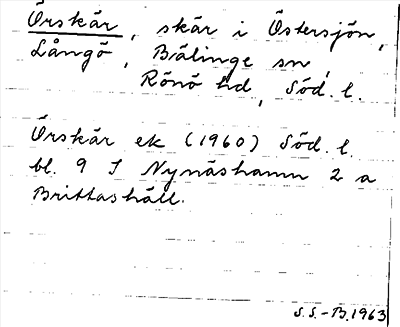 Örskär, skär i Östersjön,
Långö, Bälinge sn,
Rönö hd, Söd. l.
Örskär ek (1960) Söd. l.
bl. 9 I Nynäshamn 2 a
Brittashäll.
S.S.-B. 1963